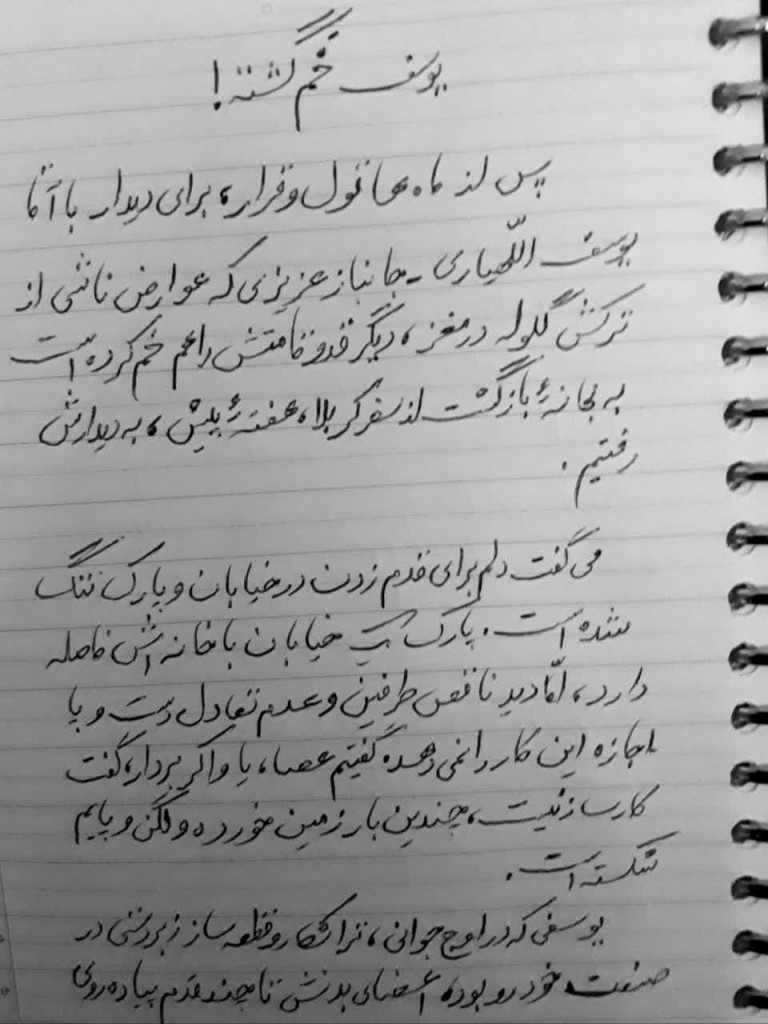 یوسف گم گشته!
پس از ماه ها قول و قرار، برای دیدار با آقا
یوسف اللهیاری - جانباز عزیزی که عوارض ناشی از
ترکش گلوله در مغز، دیگر قد و قامتش را هم خم کرده است
به بهانهٔ بازگشت از سفر کربلا، هفتهٔ پیش، به دیدارش
رفتیم.
می گفت دلم برای قدم زدن در خیابان و پارک تنگ
شده است. پارک یک خیابان با خانه اش فاصله
دارد، امّا دید ناقص طرفین و عدم تعادل دست و پا
اجازه این کار را نمی دهد. گفتیم عصا، یا واکر بردار، گفت
کارساز نیست، چندین بار زمین خورده و لگن و پایم
شکسته است.
یوسفی که در اوج جوانی، تراشکار و قطعه ساز زبردستی در
صنعت خودرو بوده، اعضای بدنش تا چند قدم پیاده روی